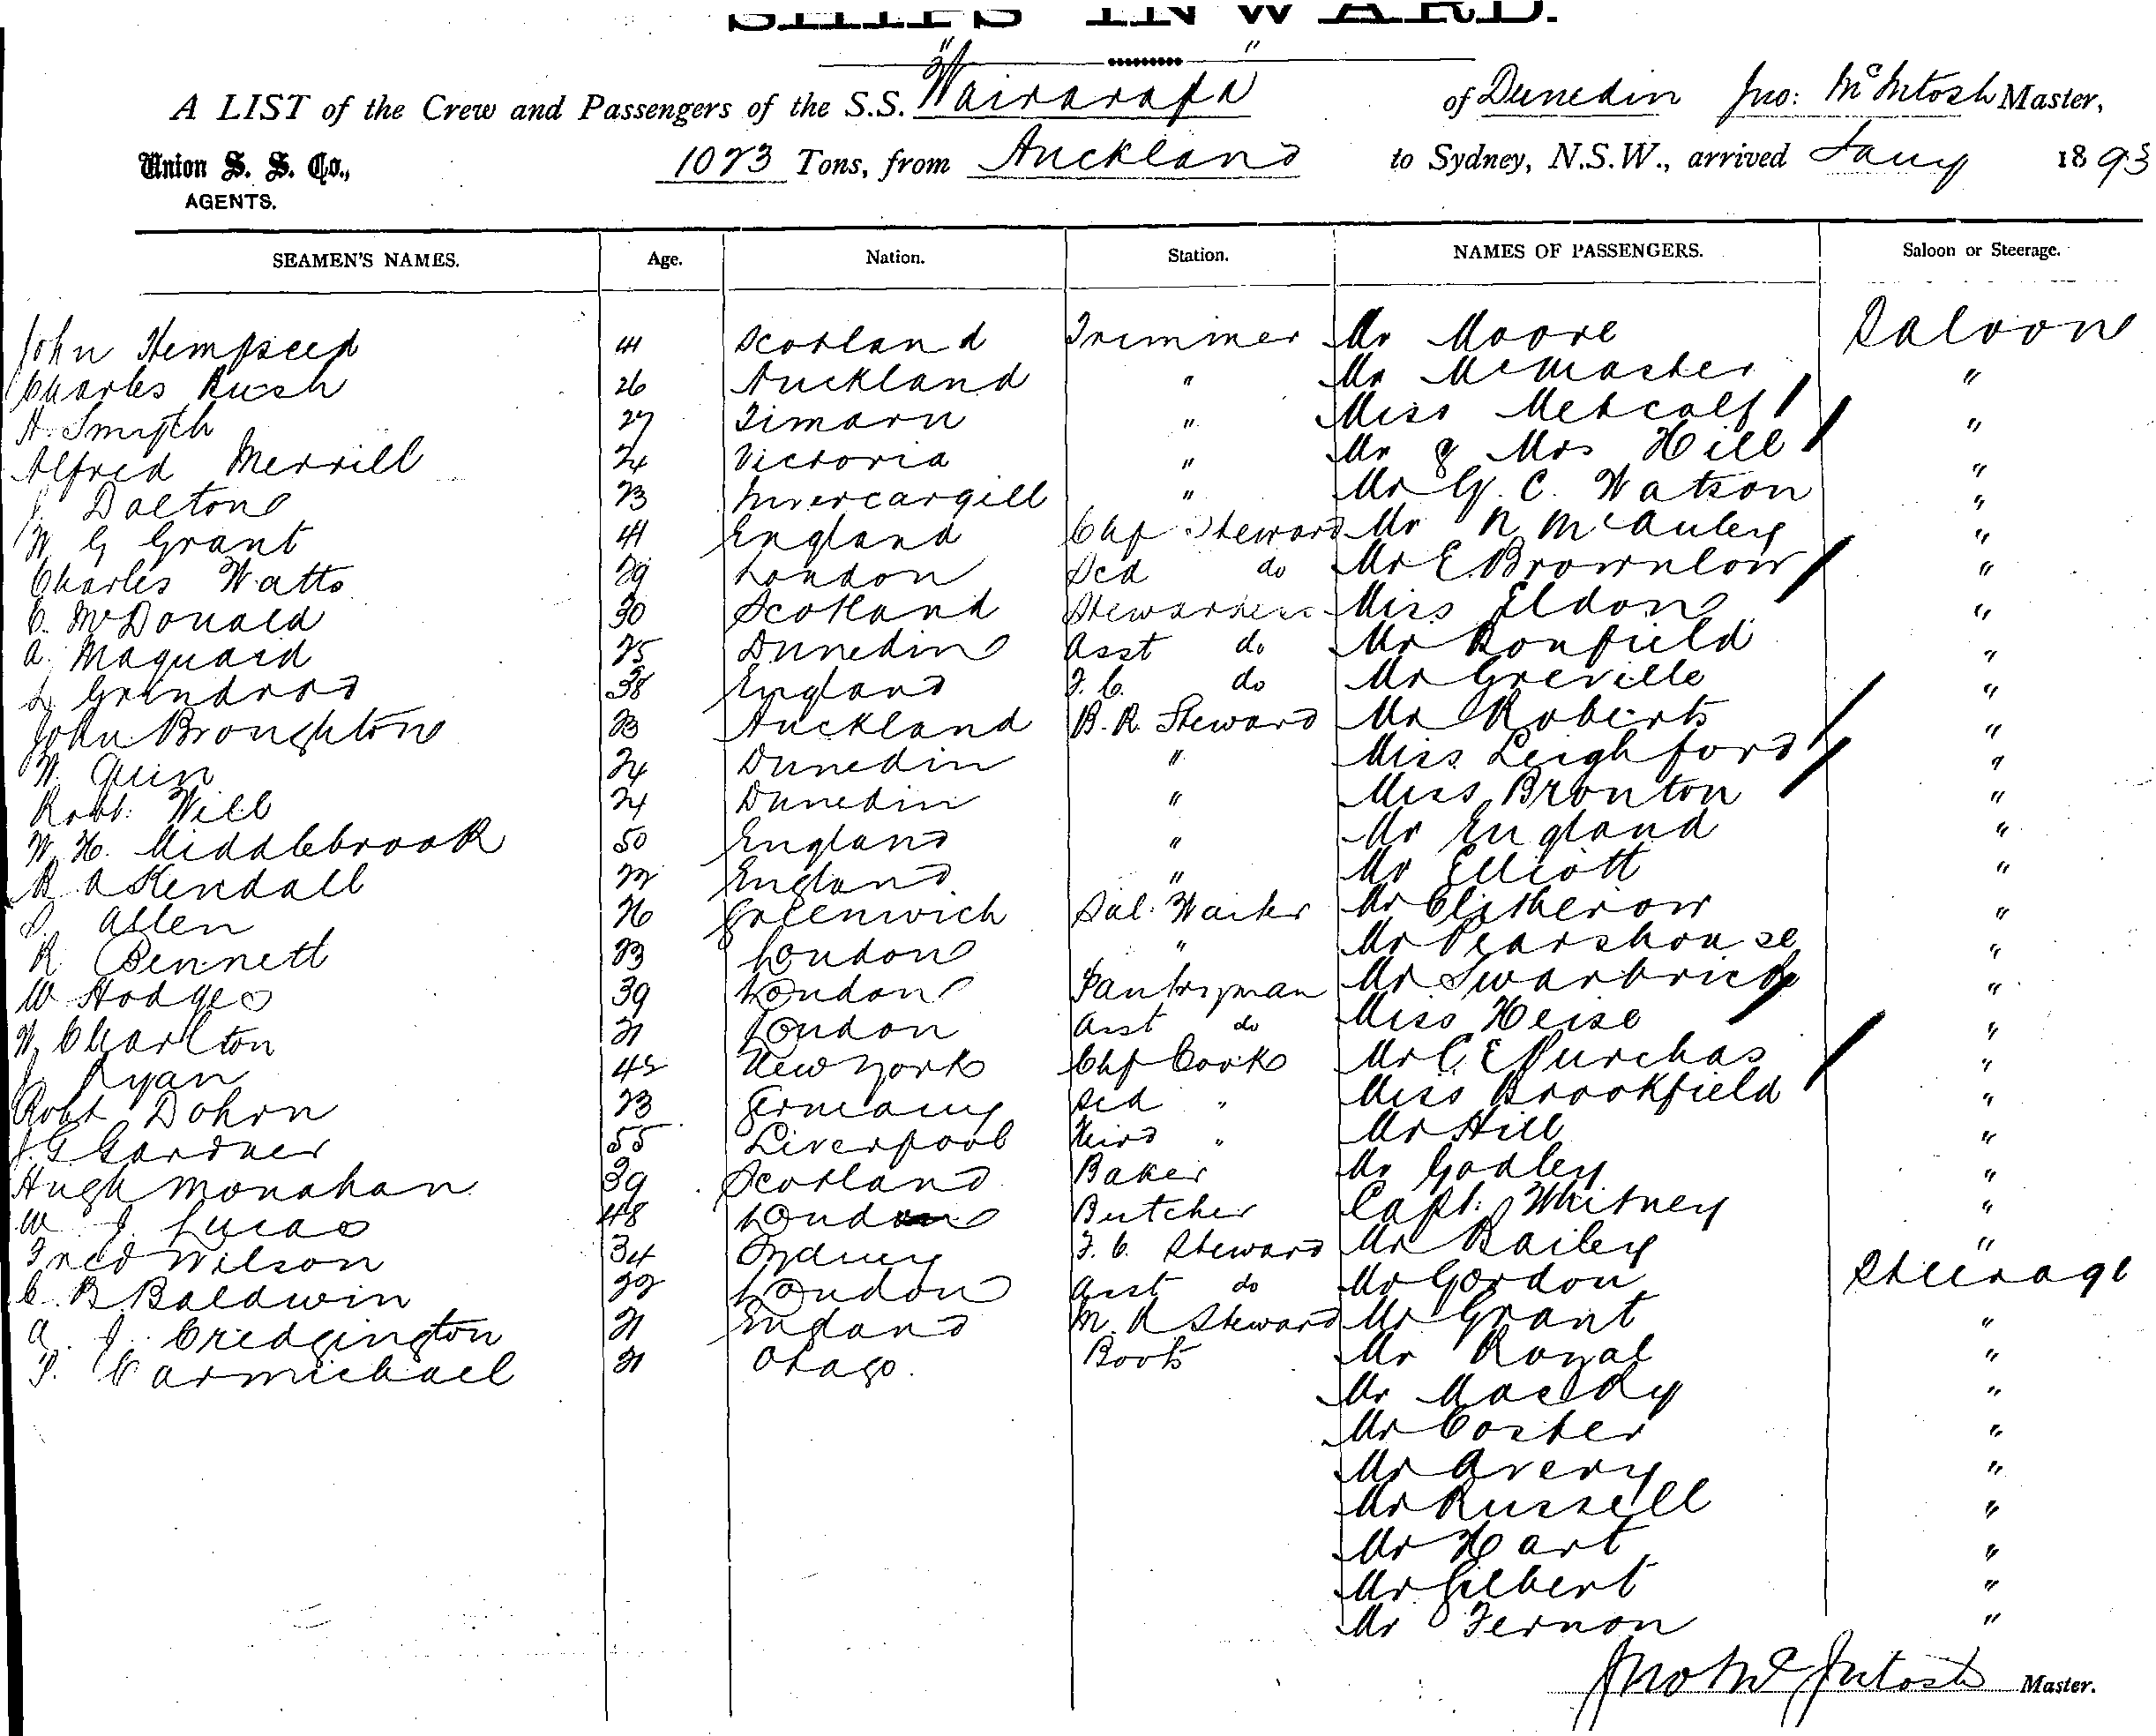 SHIPS INWARD.
A LIST of the Crew and Passengers of the S.S. "Wairarapa" of Dunedin Jno: McIntosh Master,
Union S. S. Co., 1023 Tons, from Auckland to Sydney, N.S.W., arrived Jany 1893
AGENTS.
SEAMEN'S NAMES. Age. Nation. Station. NAMES OF PASSENGERS. Saloon or Steerage.
John Hempseed 41 Scotland Trimmer Mr Moore Saloon
Charles Rush 26 Auckland " Mr McMaster "
H. Smyth 27 Timaru " Miss Metcalf "
Alfred Merrill 24 Victoria " Mr & Mrs Hill "
J. Dalton 23 Invercargill " Mr G. C. Watson "
W G Grant 41 England Chf Steward Mr R McAuley "
Charles Watts 29 London Scd do Mr E. Brownlow "
C. McDonald 30 Scotland Stewardess Miss Eldon "
A. Maquaid 25 Dunedin Asst do Mr Bonfield "
L Grindrod 38 England F. C. do Mr Greville "
John Broughton 23 Auckland B. R. Steward Mr Roberts "
W. Quin 24 Dunedin " Miss Leighford "
Robt. Will 24 Dunedin " Miss Bronton "
W. H. Middlebrook 50 England " Mr England "
R A Kendall 22 England " Mr Elliott "
S. Allen 26 Greenwich Sal. Waiter Mr Clitherow "
R Bennett 23 London " Mr Pearshouse "
W Hodges 39 London Pantryman Mr Swarbrick "
W. Charlton 21 London Asst do Miss Heise "
J. Ryan 42 New York Chf Cook Mr C E Purchas "
Robt Dohrn 23 Germany Scd " Miss Brookfield "
J. G. Gardner 55 Liverpool Third " Mr Hill "
Hugh Monahan 39 Scotland Baker Mr Godley "
W J. Lucas 48 London Butcher Capt: Whitney "
Fred Wilson 34 Sydney F. C. Steward Mr Bailey "
C. B Baldwin 22 London Asst do Mr Gordon Steerage
A. J. Credgington 21 England M. R Steward Mr Grant "
P. Carmichael 21 Otago. Boots Mr Royal "
Mr "
Mr Coster "
Mr Avery "
Mr Russell "
Mr Hart "
Mr Gilbert "
Mr Fernon "
Jno McIntosh Master.